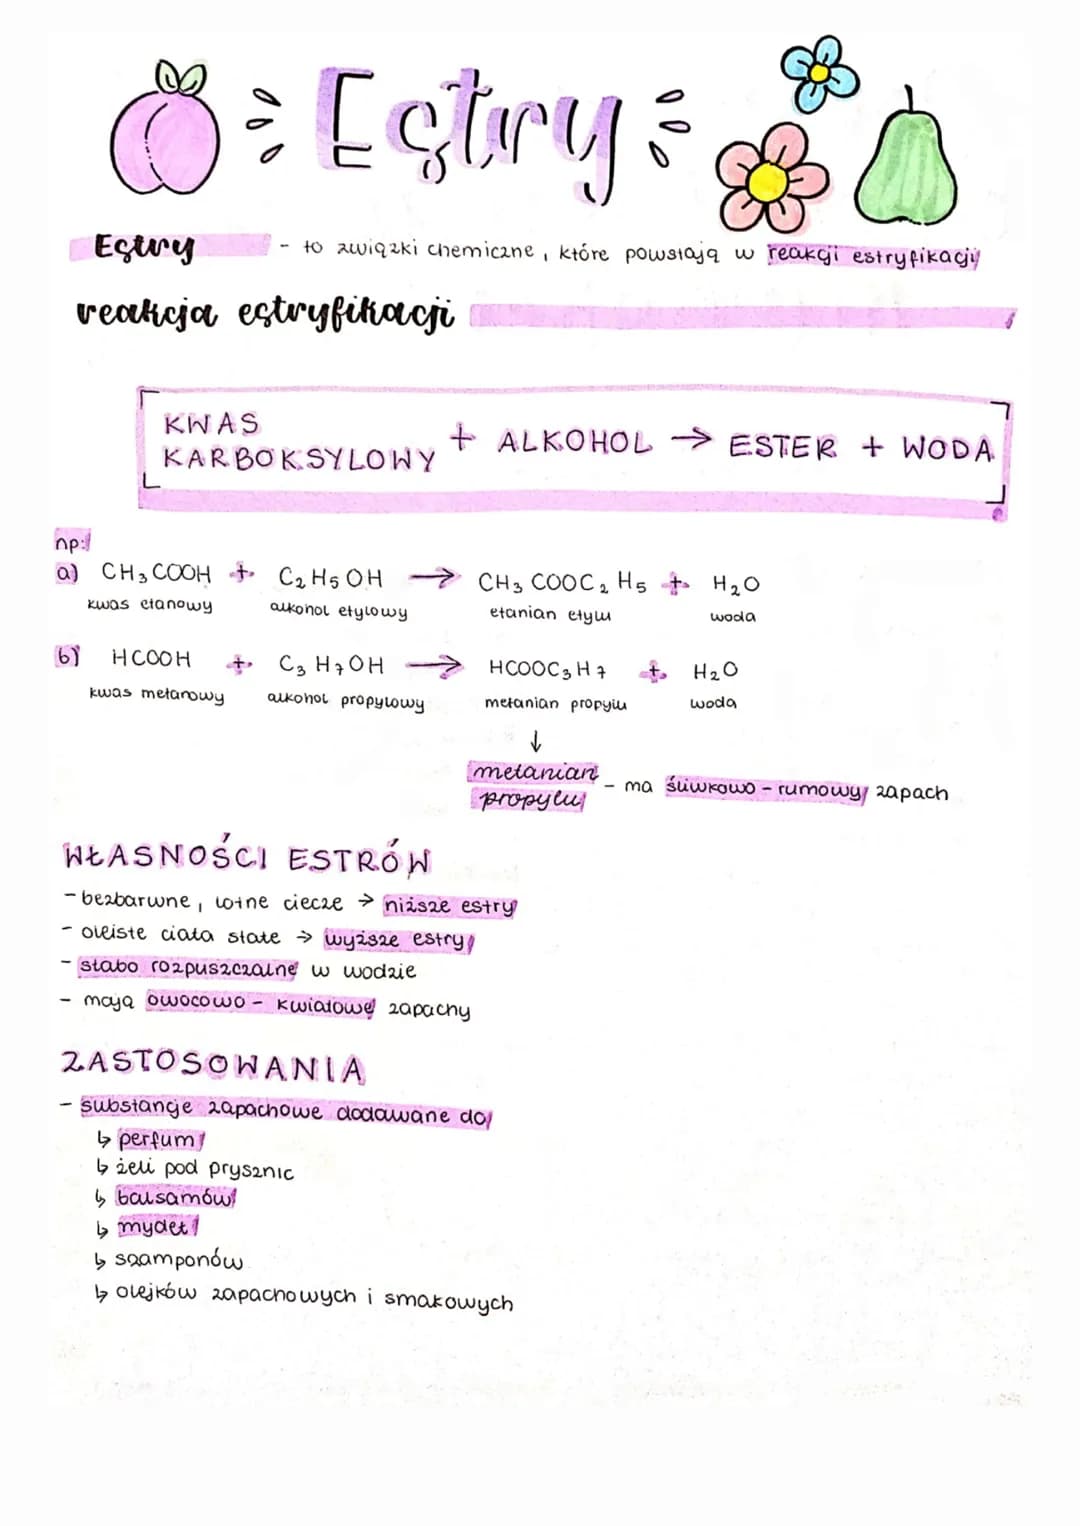 Estry
Estry - to związki chemiczne, które powstają w reakcji estryfikacji
reakcja estryfikacji
KWAS KARBOKSYLOWY + ALKOHOL → ESTER + WODA
np:
a) CH₃COOH + C₂H₅OH → CH₃COOC₂H₅ + H₂O
kwas etanowy alkohol etylowy etanian etylu woda
b) HCOOH + C₃H₇OH → HCOOC₃H₇ + H₂O
kwas metanowy alkohol propylowy metanian propylu woda
↓
metanian propylu - ma śliwkowo - rumowy zapach
WŁASNOŚCI ESTRÓW
- bezbarwne, lotne ciecze → niższe estry
- oleiste ciała stałe → wyższe estry
- słabo rozpuszczalne w wodzie
- mają owocowo - kwiatowe zapachy
ZASTOSOWANIA
- substancje zapachowe dodawane do
↳ perfum
↳ żeli pod prysznic
↳ balsamów
↳ mydeł
↳ szamponów
↳ olejków zapachowych i smakowych